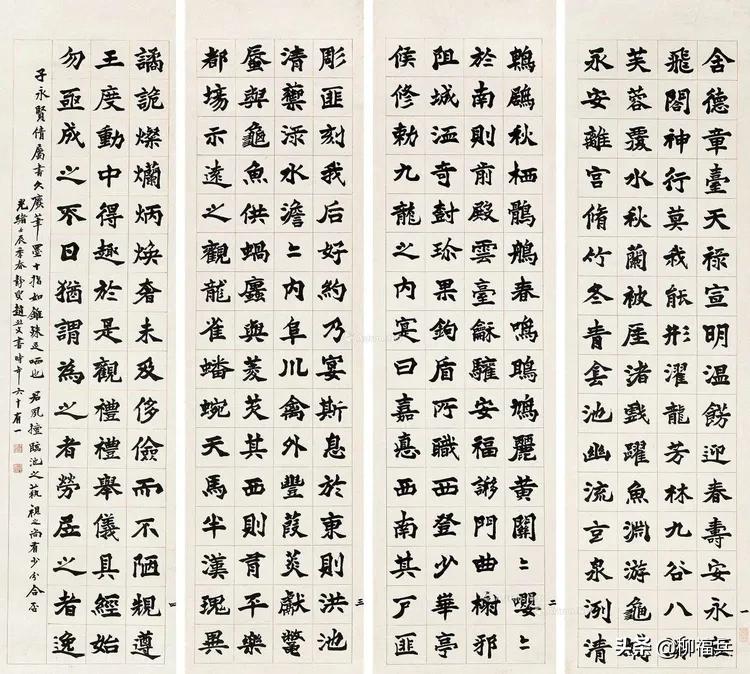 舍德章臺天祿宣明温飭迎春壽安永
飛閣神行莫我能形濯龍芳林九谷八
芙蓉覆水秋蘭被厓渚戲躍魚淵游龜
永安離宮脩竹冬青霒池幽流玄泉洌清
一
鵯鶋秋栖鶻鵃春鳴鴡鳩麗黃關〻嚶〻
於南則前殿雲臺龢驩安福謻門曲榭邪
阻城洫奇封珍果鉤盾所職西登少華亭
候修勅九龍之內寔曰嘉悳西南其戶匪
二
彫匪刻我后好約乃宴斯息於東則洪池
清籞淥水澹〻內阜川禽外豐葭菼獻鱉
蜃與龜魚供蝸蠯與菱芡其西則有平樂
都場示遠之觀龍雀蟠蜿天馬半漢瑰異
三
譎詭燦爛炳煥奢未及侈儉而不陋規遵
王度動中得趣於是觀禮禮舉儀具經始
勿亟成之不日猶謂為之者勞居之者逸
四
子永賢倩屬書久廢筆墨十指如錐殊足哂也 君風擅臨池之藝視之尚有少分合否
光緒辰季春靜叟趙書時年六十有一
头条 @柳福兵